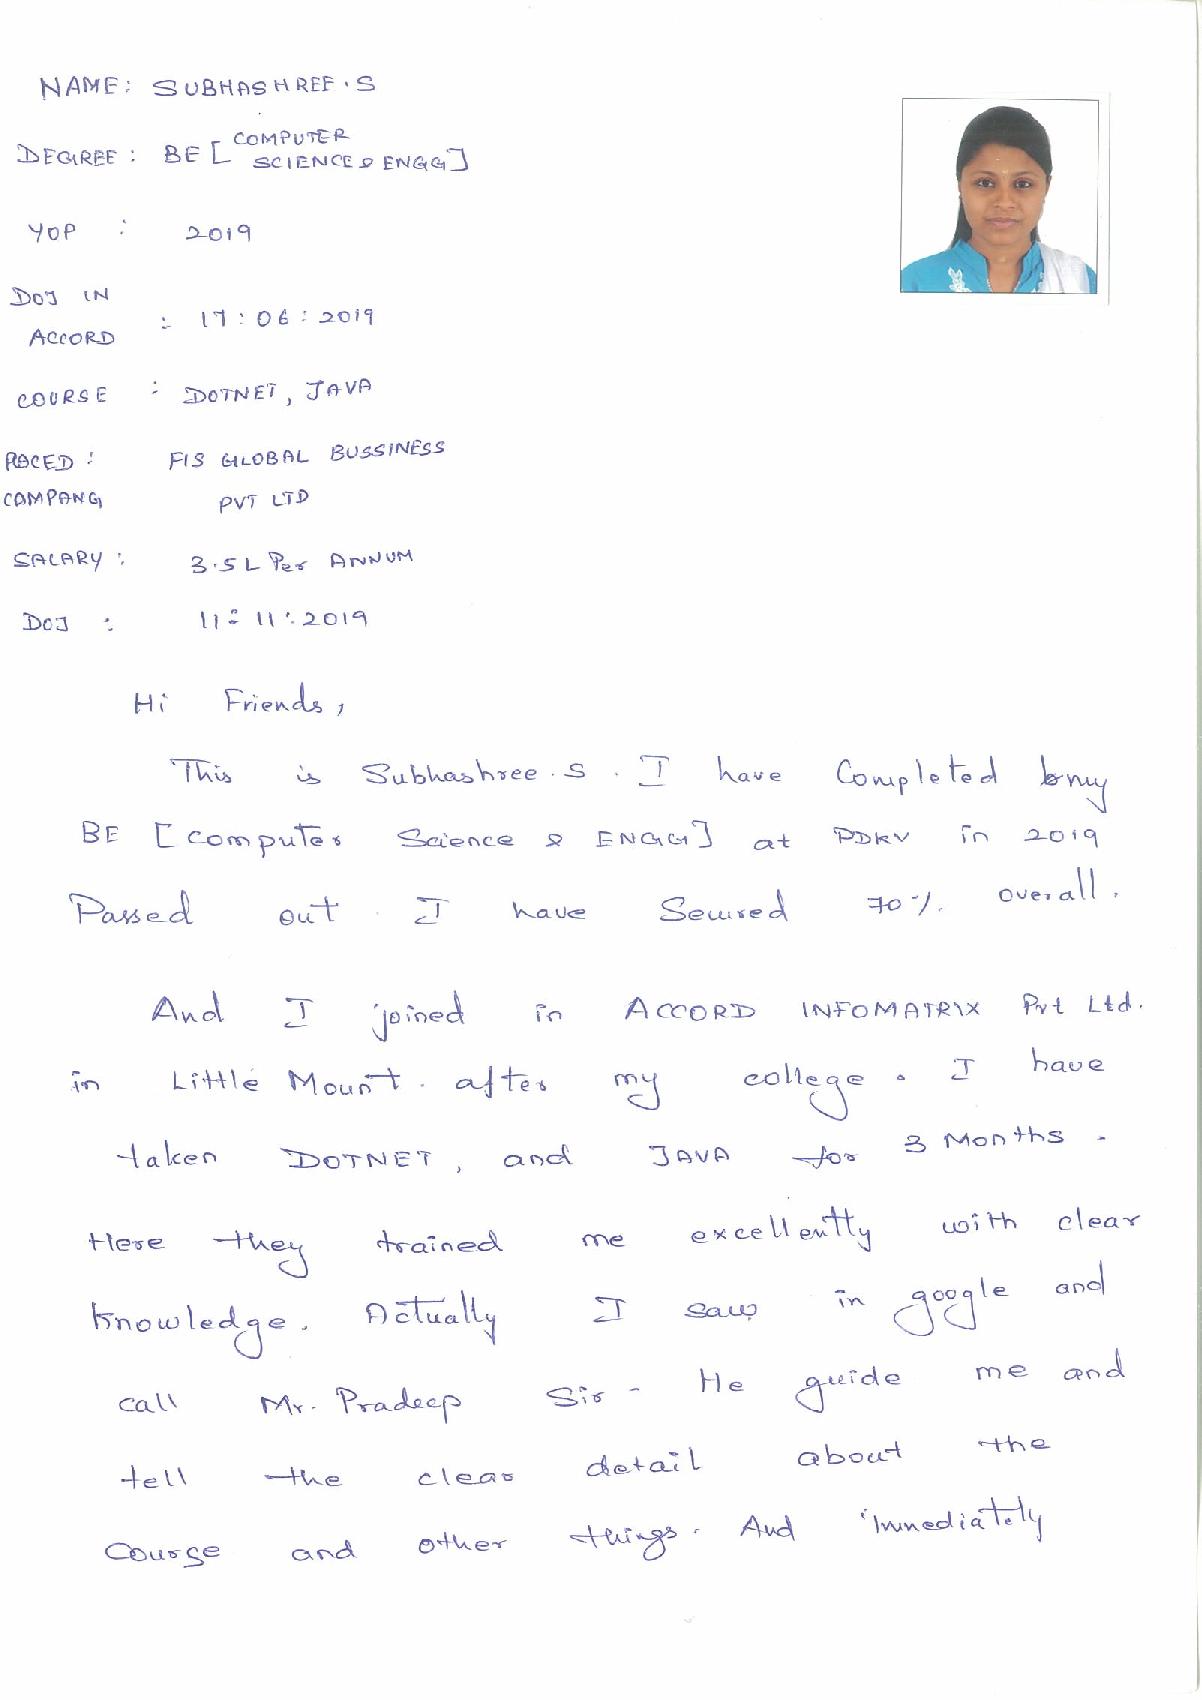 NAME: SUBHASHREE.S
DEGREE: BE [COMPUTER
SCIENCE & ENGG]
YOP : 2019
DOJ IN
ACCORD : 17:06:2019
COURSE : DOTNET, JAVA
PLACED : FIS GLOBAL BUSSINESS
COMPANG PVT LTD
SALARY : 3.5 L Per ANNUM
DOJ : 11:11:2019
Hi Friends,
This is Subhashree.S. I have Completed my
BE [Computer Science & ENGG] at PDKV in 2019
Passed out. I have Secured 70%. overall.
And I joined in ACCORD INFOMATRIX Pvt Ltd.
in Little Mount. after my college. I have
taken DOTNET, and JAVA for 3 Months.
Here they trained me excellently with clear
knowledge. Actually I saw in google and
call Mr. Pradeep Sir. He guide me and
tell the clear detail about the
Course and other things. And immediately